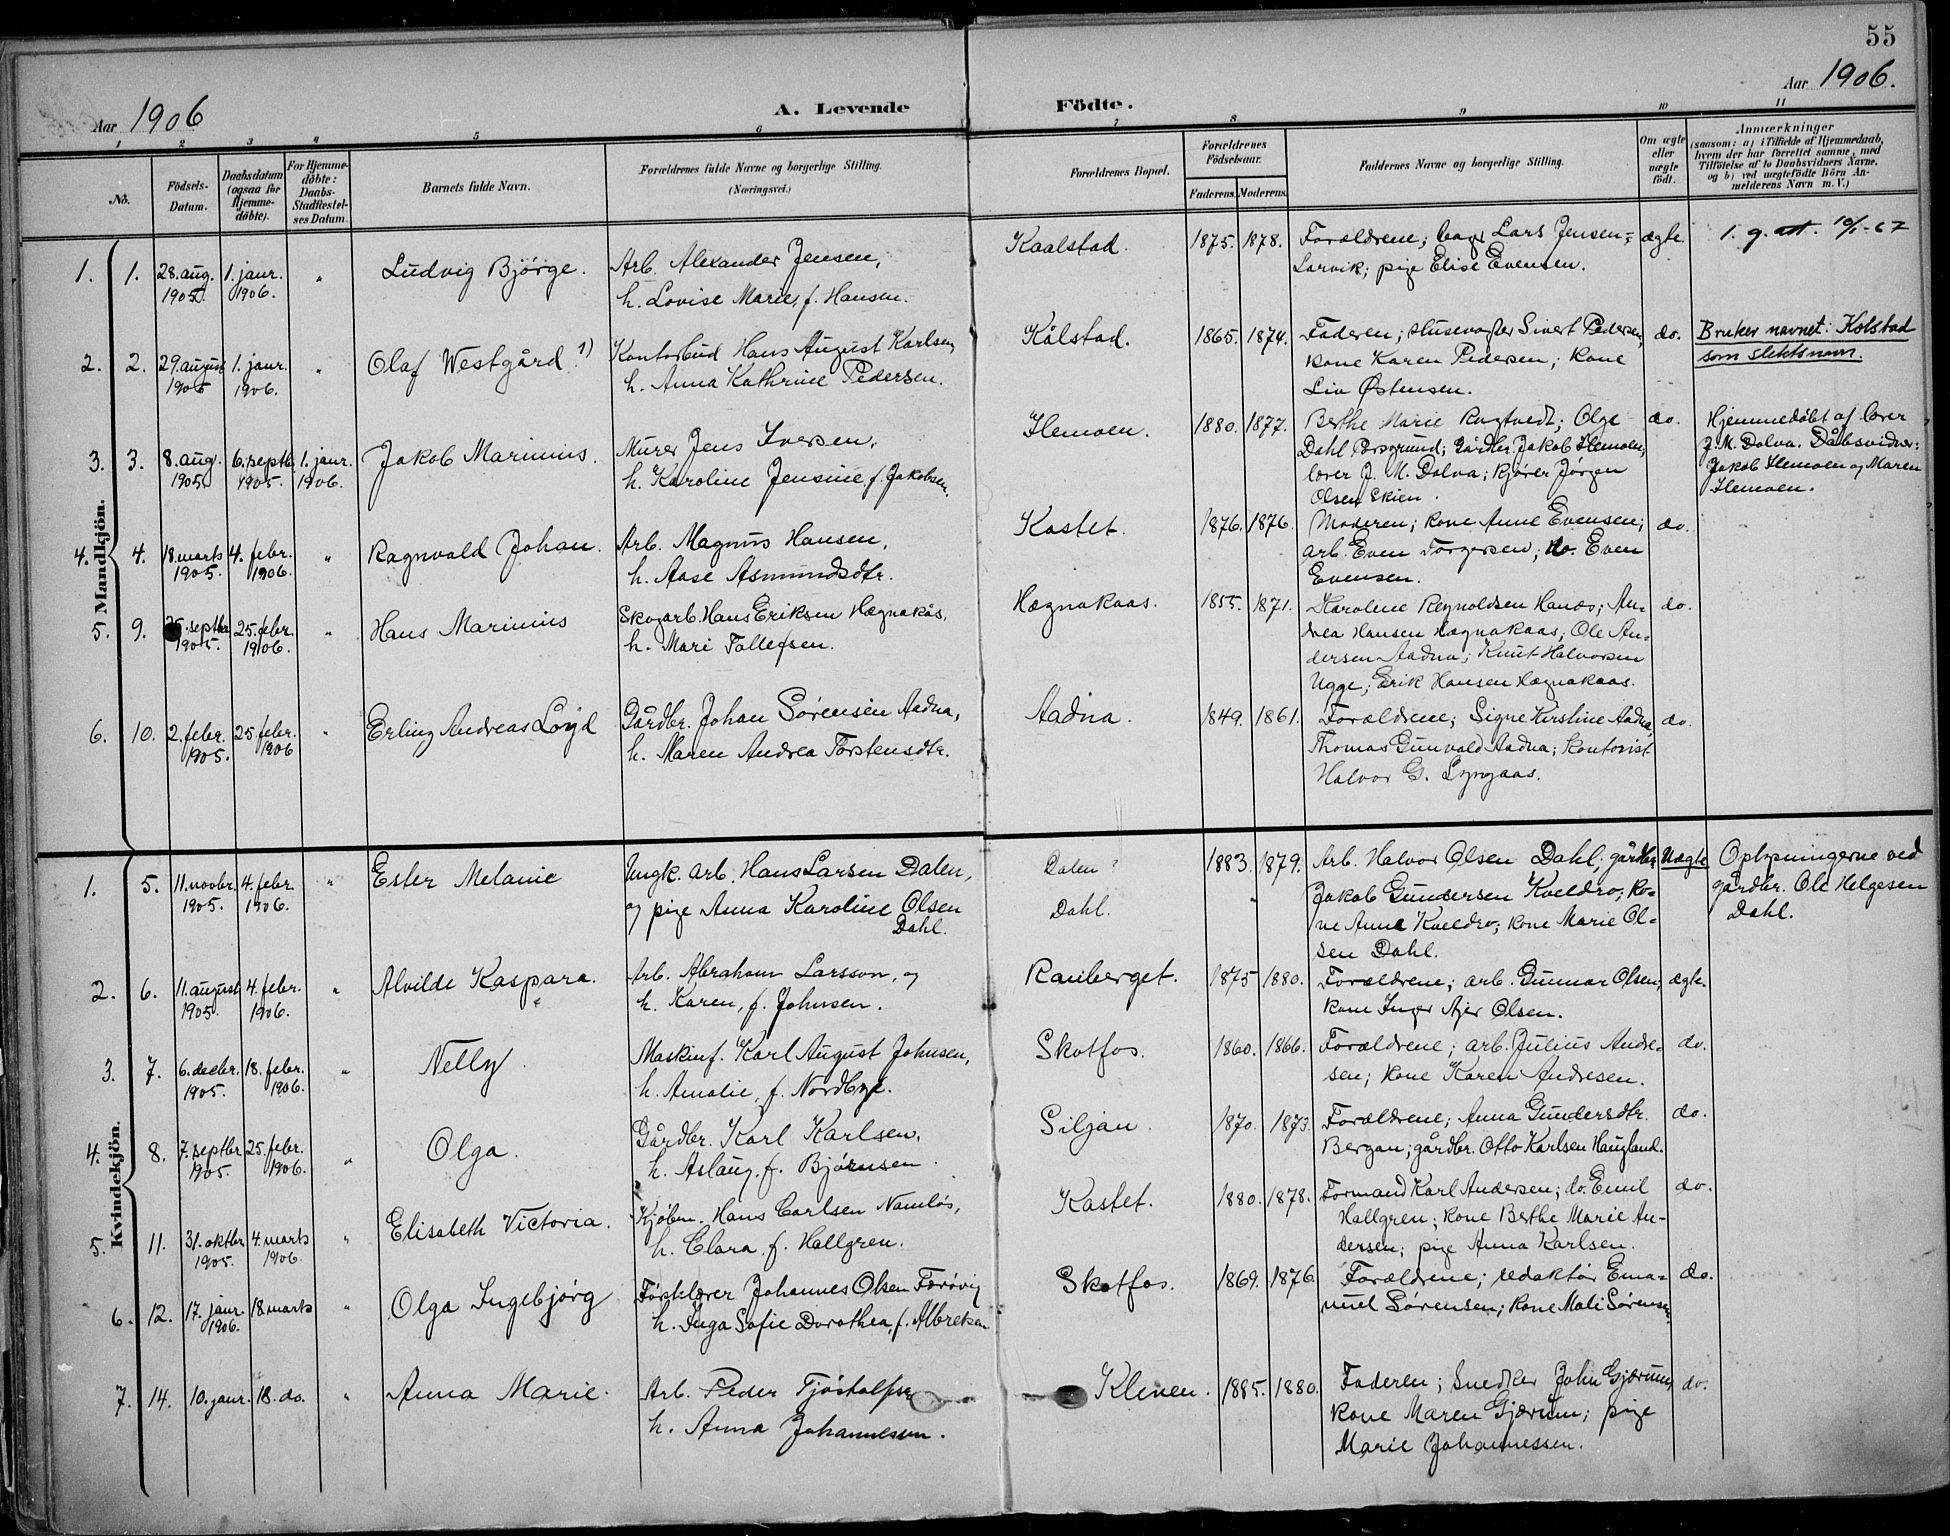 55
Aar 1906
A. Levende Födte.
Aar 1906.
1 2 3 4 5 6 7 8 9 10 11
No.
Födsels-Datum.
Daabsdatum (ogsaa för Hjemmedöbte).
For Hjemmedöbte: Daabs-Stadfæstelses Datum.
Barnets fulde Navn.
Forældrenes fulde Navne og borgerlige Stilling.
(Næringsvei.)
Forældrenes Bopæl.
Forældrenes Födselsaar.
Faderens. Moderens.
Faddernes Navne og borgerlige Stilling.
Om ægte eller uægte födt.
Anmærkninger
(saasom: a) i Tilfælde af Hjemmedaab, hvem der har forrettet samme, med Tilföielse af to Daabsvidners Navne, og b) ved uægtefödte Börn Anmelderens Navn m. V.)
Mandkjön.
1. 1. 28. aug. 1905. 1. janr. 1906. " Ludvig Bjørge.
Arb. Alexander Jensen,
h. Lovise Marie, f. Hansen.
Kaalstad. 1875. 1878.
Forældrene; Lars Jensen,
Larvik; pige Elise Evensen.
ægte.
2. 2. 29. august 1905 1. janr. 1906. " Olaf Westgård 1)
Kontorbud Hans August Karlsen,
h. Anna Kathrine Pedersen.
Kålstad. 1865. 1874.
Faderen; Sivert Pedersen,
kone Karen Pedersen; kone
Liv Østensen.
do.
Bruker navnet: Kolstad
som slektsnavn.
3. 3. 8. aug. 1905 6. septb. 1905. 1. janr. 1906. Jakob Marinius.
Murer Jens Iversen,
h. Karoline Jensine, f. Jakobsen.
Hemoen. 1880. 1877.
Berthe Marie; Olga
Dahl Porsgrund; Gårdbr. Jakob Hemoen;
lærer J. M. Dolva; kjører Jørgen
Olsen Skien.
do.
Hjemmedøbt af lærer
J. M. Dolva. Dåbsvidner:
Jakob Hemoen og Maren
Hemoen.
4. 4. 18. marts 1905. 4. febr. 1906. " Ragnvald Johan.
Arb. Magnus Hansen,
h. Aase Asmundsdtr.
Kastet. 1876. 1876.
Moderen; kone Anne Evensen;
arb. Even Torgersen; do. Even
Evensen.
do.
5. 9. septbr. 1905. 25. febr. 1906. " Hans Marinius
Skogarb. Hans Eriksen Hægnakås,
h. Mari Tollefsen.
Hægnakaas. 1855. 1871.
Karoline Reynoldsen Hanes; An-
drea Hansen Hægnakaas; Ole An-
dersen Aadna; Knut Halvorsen
Ugge; Erik Hansen Hægnakaas.
do.
6. 10. 2. febr. 1905. 25. febr. 1906 " Erling Andreas Loyd
Gårdbr. Johan Sørensen Aadna,
h. Maren Andrea Torstensdtr.
Aadna. 1849. 1861.
Forældrene; Signe Kirstine Aadna,
Thomas Gunvald Aadna; kontorist
Halvor G. Lyngaas.
do.
Kvindekjön.
1. 5. 11. novbr. 1905. 4. febr. 1906. " Ester Melanie
Ungk. arb. Hans Larsen Dalen,
og pige Anna Karoline Olsen
Dahl.
Dalen?
Dahl.
1883. 1879.
Arb. Halvor Olsen Dahl; gårdbr.
Jakob Gundersen Kveldro; ko-
ne Anne Kveldro; kone Marie Ol-
sen Dahl.
Uægte
Oplysningerne ved
gårdbr. Ole Helgesen
Dahl.
2. 6. 11. august 1905. 4. febr. 1906. " Alvilde Kaspara.
Arb. Abraham Larsson, og
h. Karen, f. Johnsen.
Rauberget. 1875 1880.
Forældrene; arb. Gunnar Olsen;
kone Inger Olsen.
ægte.
3. 7. 6. decbr. 1905. 18. febr. 1906. " Nelly.
Maskinf. Karl August Johnsen,
h. Amalie, f. Nordbye.
Skotfos. 1860. 1866.
Forældrene; arb. Julius Andre-
sen; kone Karen Andresen.
do.
4. 8. 7. septbr. 1905. 25. febr. 1906. " Olga.
Gårdbr. Karl Karlsen,
h. Aslaug, f. Bjørnsen.
Siljan. 1870. 1873.
Forældrene; Anna Gundersdtr.
Bergan; gårdbr. Otto Karlsen Haugland.
do.
5. 11. 31. oktbr. 1905. 4. marts 1906. " Elisabeth Victoria.
Kjøbm. Hans Carlsen Namløs,
h. Clara, f. Hallgren.
Kastet. 1880. 1878.
Formand Karl Andersen; do. Emil
Hallgren; kone Berthe Marie An-
dersen; pige Anna Karlsen.
do.
6. 12. 17. janr. 1906. 18. marts " Olga Ingebjørg
Johannes Olsen Førøvig
h. Inga Sofie Dorothea, f. Albretsen
Skotfos. 1869. 1876.
Forældrene; redaktør Ema-
nuel Sørensen; kone Mali Sørensen.
do.
7. 14. 10. janr. 18. do. " Anna Marie.
Arb. Peder Tjøstolfsen
h. Anna Johannessen.
Kleven. 1885. 1880.
Faderen; Snedker John Gjærum,
kone Maren Gjærum; pige
Marie Johannessen.
do.